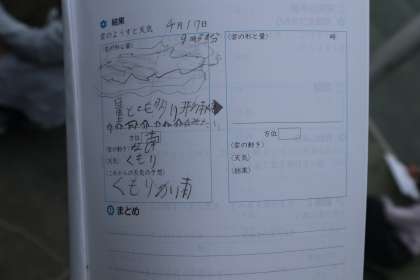 結果
雲のようすと天気 4月17日
9時
(雲の形と量)
量 とても多い
方位 南
(雲の動き)
(天気) くもり
(これからの天気の予想)
くもりか雨
(雲の形と量) 時
方位
(雲の動き)
(天気)
(結果)
まとめ